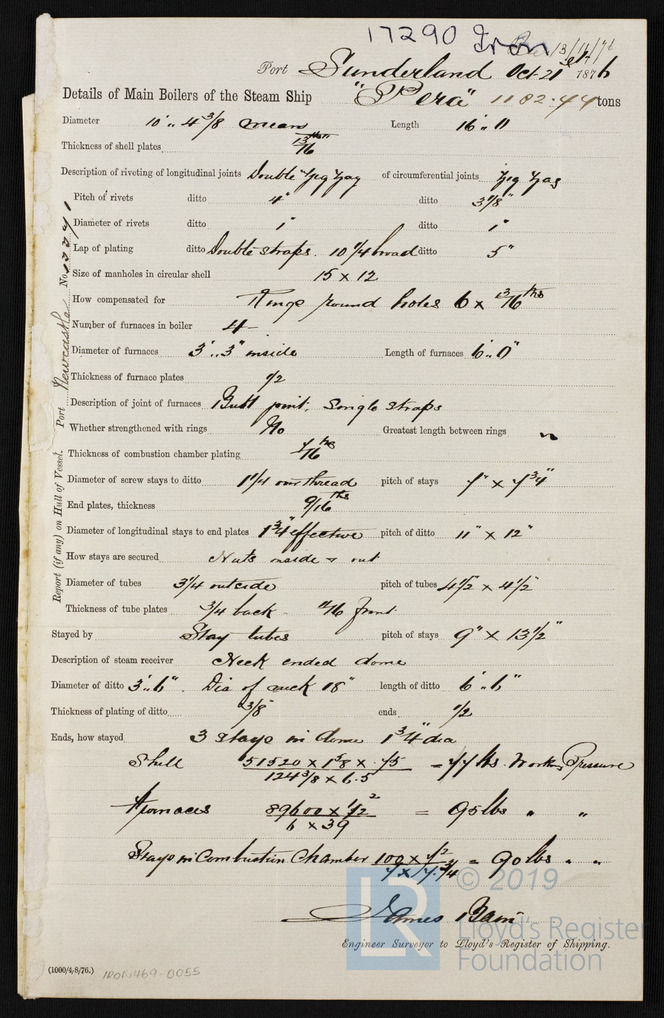 17290 Iron
Rec 13/11/76
Port Sunderland Oct 21st 1876
Details of Main Boilers of the Steam Ship "Pera" 1182.44 tons
Diameter 10'.. 4 3/8 mean Length 16'.. 0"
Thickness of shell plates 13/16ths
Description of riveting of longitudinal joints Double Zig Zag of circumferential joints Zig Zag
Pitch of rivets ditto 4" ditto 3 1/8"
Diameter of rivets ditto 1" ditto 1"
Lap of plating ditto Double straps. 10 1/4 broad ditto 5"
Size of manholes in circular shell 15 x 12
How compensated for Rings round holes 6 x 13/16ths
Number of furnaces in boiler 4
Diameter of furnaces 3'.. 3" inside Length of furnaces 6'.. 0"
Thickness of furnace plates 1/2
Description of joint of furnaces Butt joint, Single straps
Whether strengthened with rings No Greatest length between rings "
Thickness of combustion chamber plating 7/16ths
Diameter of screw stays to ditto 1 1/4 over thread pitch of stays 7" x 7 3/4"
End plates, thickness 9/16ths
Diameter of longitudinal stays to end plates 1 3/4" effective pitch of ditto 11" x 12"
How stays are secured Nuts inside & out
Diameter of tubes 3 1/4 outside pitch of tubes 4 1/2 x 4 1/2
Thickness of tube plates 3/4 back 11/16 front
Stayed by Stay tubes pitch of stays 9" x 13 1/2"
Description of steam receiver Neck ended dome
Diameter of ditto 3'.. 6". Dia of neck 18" length of ditto 6'.. 6"
Thickness of plating of ditto 3/8" ends 1/2
Ends, how stayed 3 stays in dome 1 3/4" dia
Shell 51520 x 1 5/8 x .75 = 77 lbs. Working Pressure
124 3/8 x 6.5
Furnaces 89600 x 1/2² = 95 lbs " "
6 x 39
Stays in Combustion Chamber 100 x 7² = 90 lbs " "
7 x 7 3/4
James Bain
Engineer Surveyor to Lloyd's Register of Shipping.
(1000/4,8/76.) IRON469-0055
Report (if any) on Hull of Vessel. Port Newcastle No.
LR © 2019
Lloyd's Register
Foundation